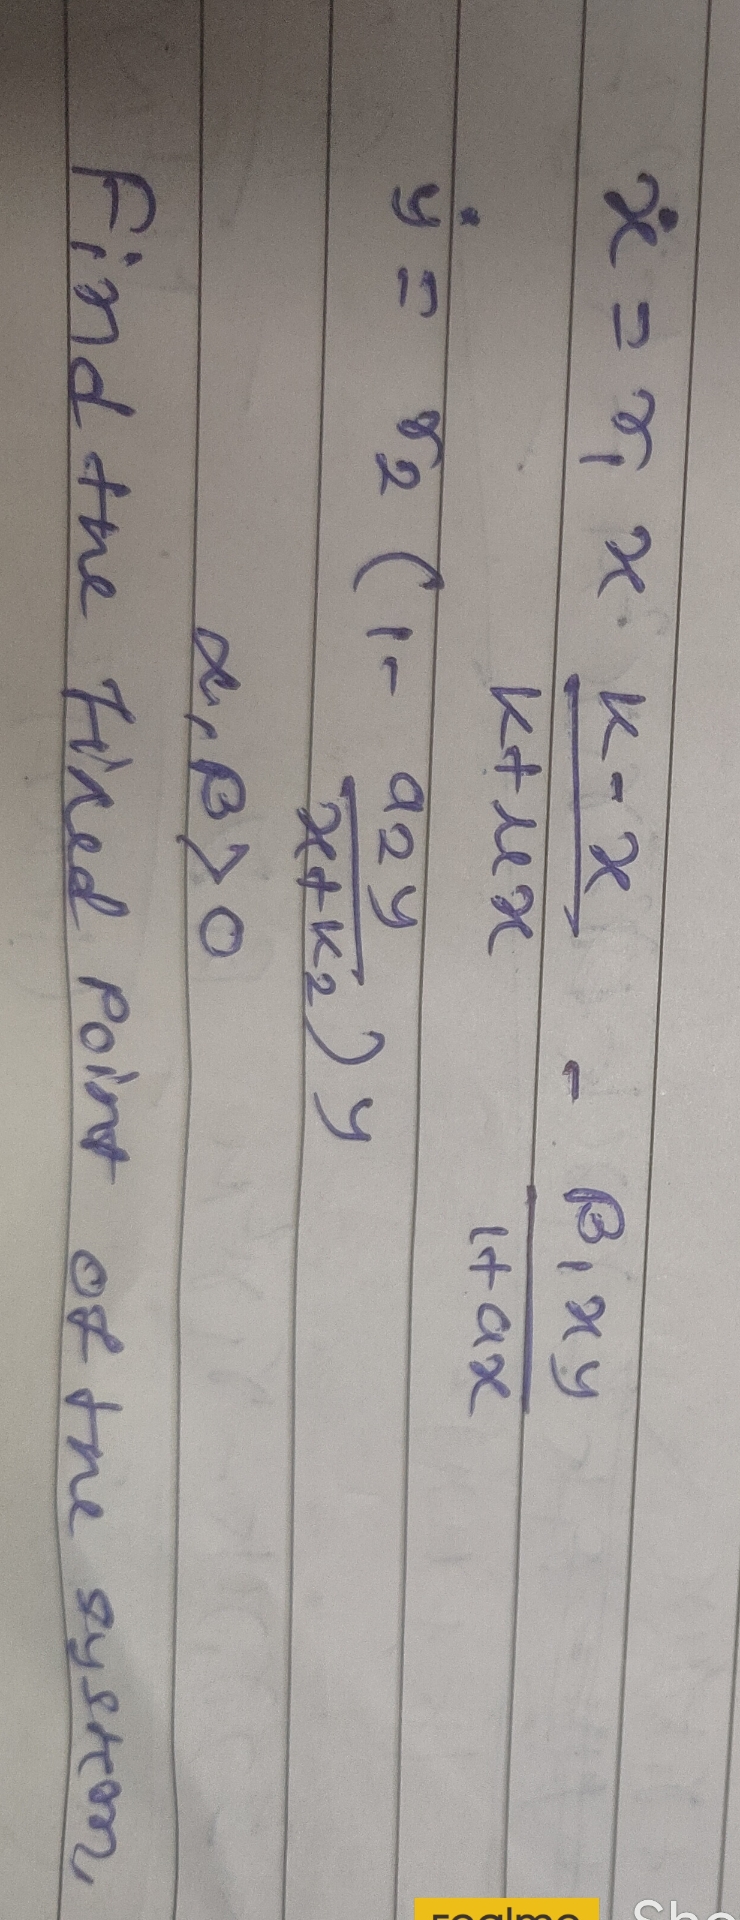 ẋ = r₁ x · (k - x)/(k + μx) - β₁xy/(1 + ax)
ẏ = r₂ (1 - a₂y/(x + k₂)) y
α, β > 0
Find the Fixed Point of the system,
realme
Sho